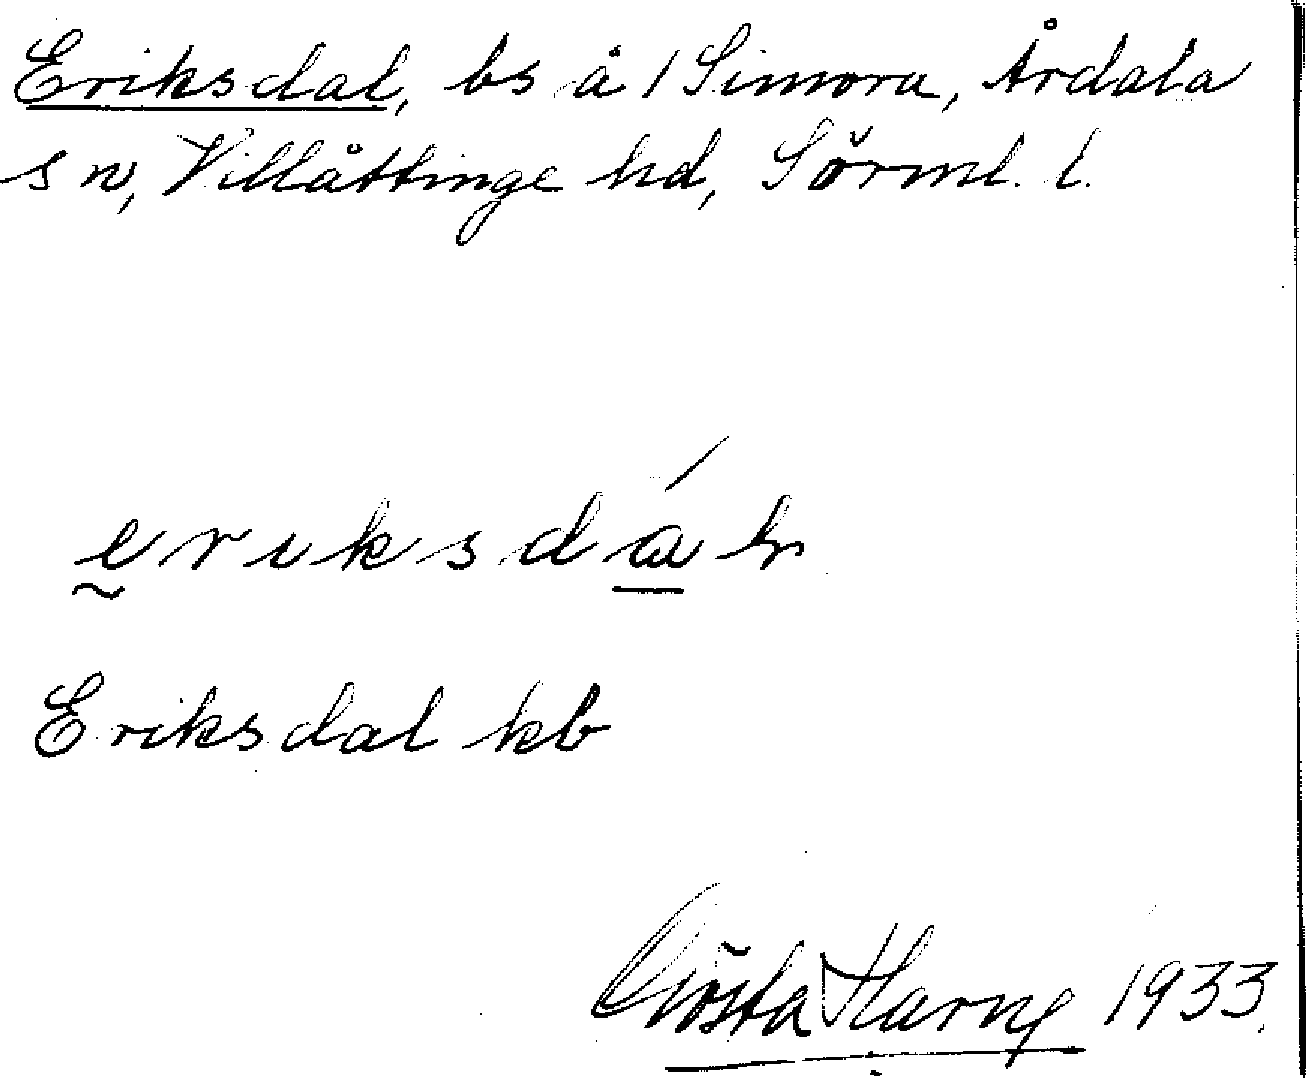 Eriksdal, bs å / Simora, Årdala
sn, Villåttinge hd, Sörml. l.
eriksdál
Eriksdal kb
Gösta Harng 1933.